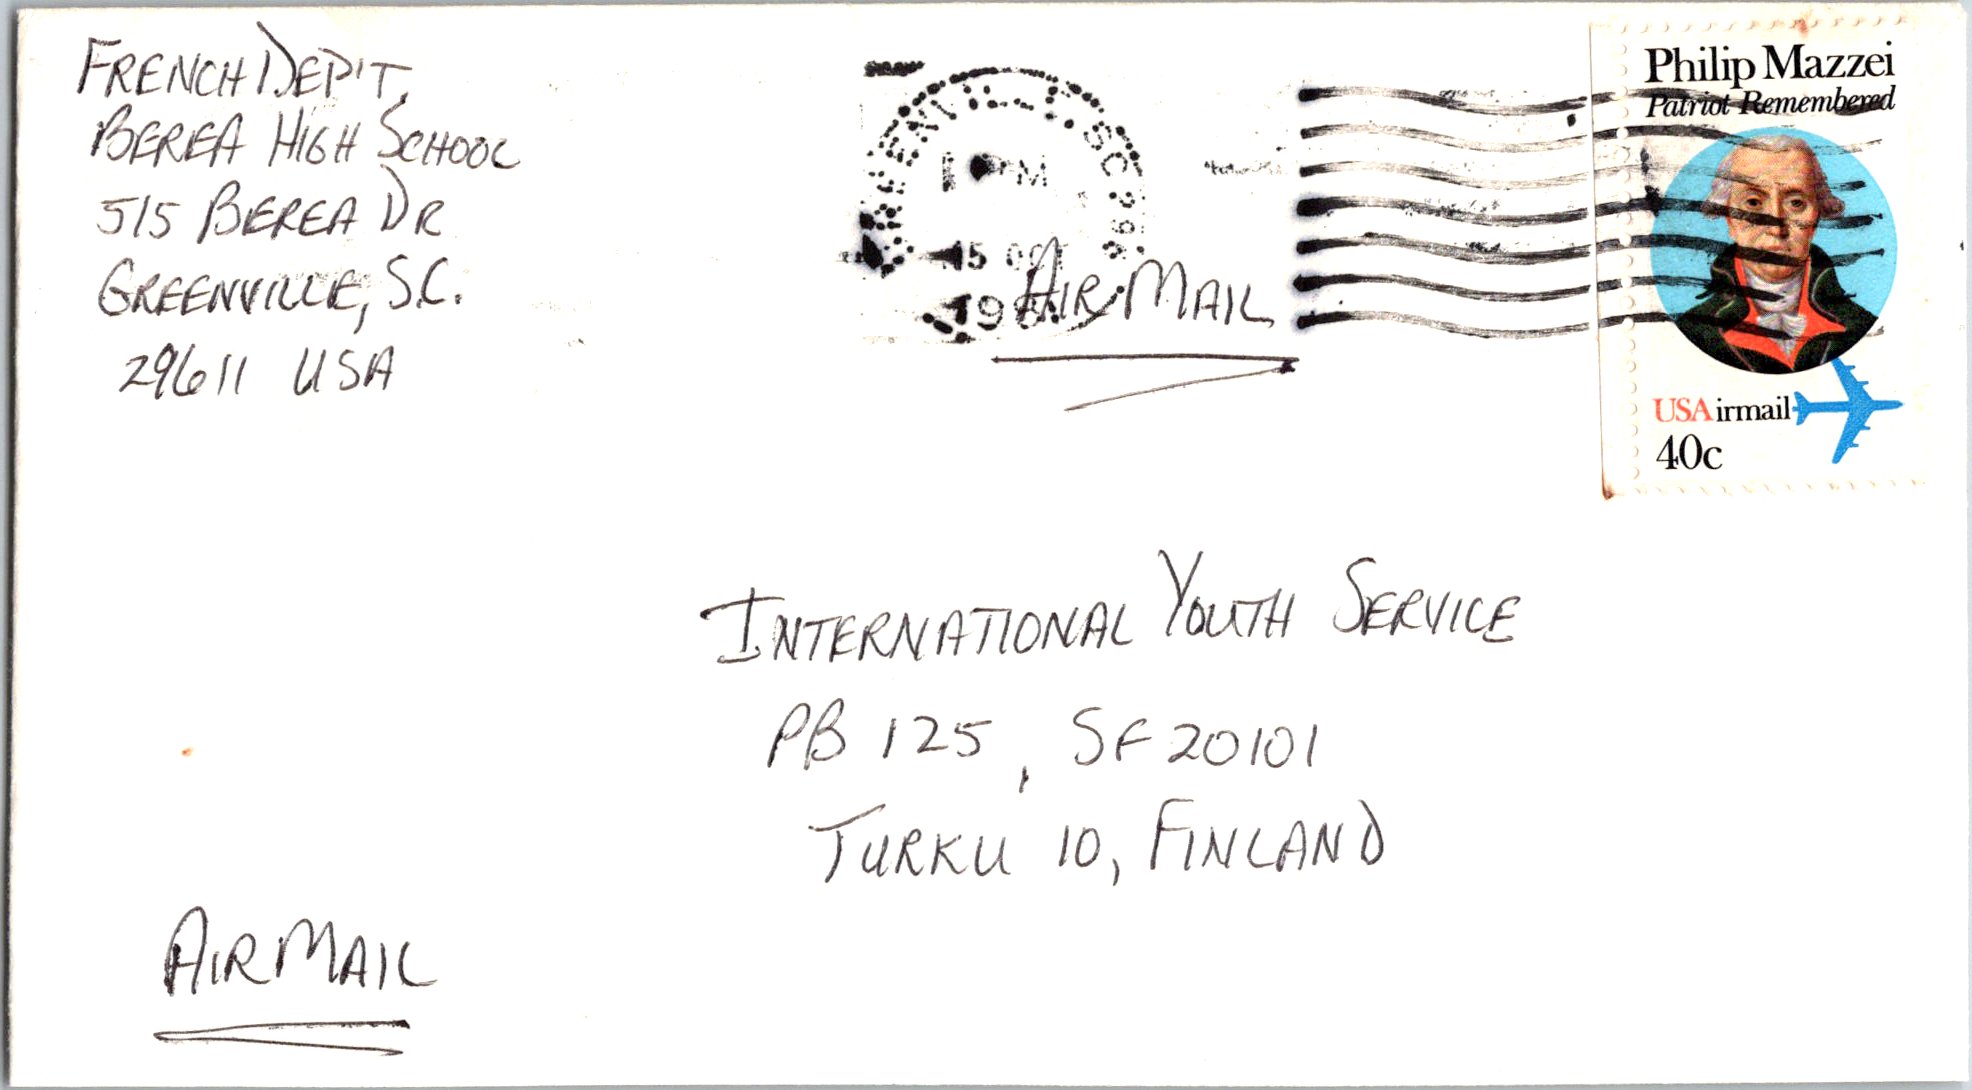 FRENCH DEP'T,
BEREA HIGH SCHOOL
515 BEREA DR
GREENVILLE, S.C.
29611 USA
SC 296
PM
15
AIR MAIL
Philip Mazzei
Patriot Remembered
USAirmail
40c
INTERNATIONAL YOUTH SERVICE
PB 125, SF 20101
TURKU 10, FINLAND
AIR MAIL